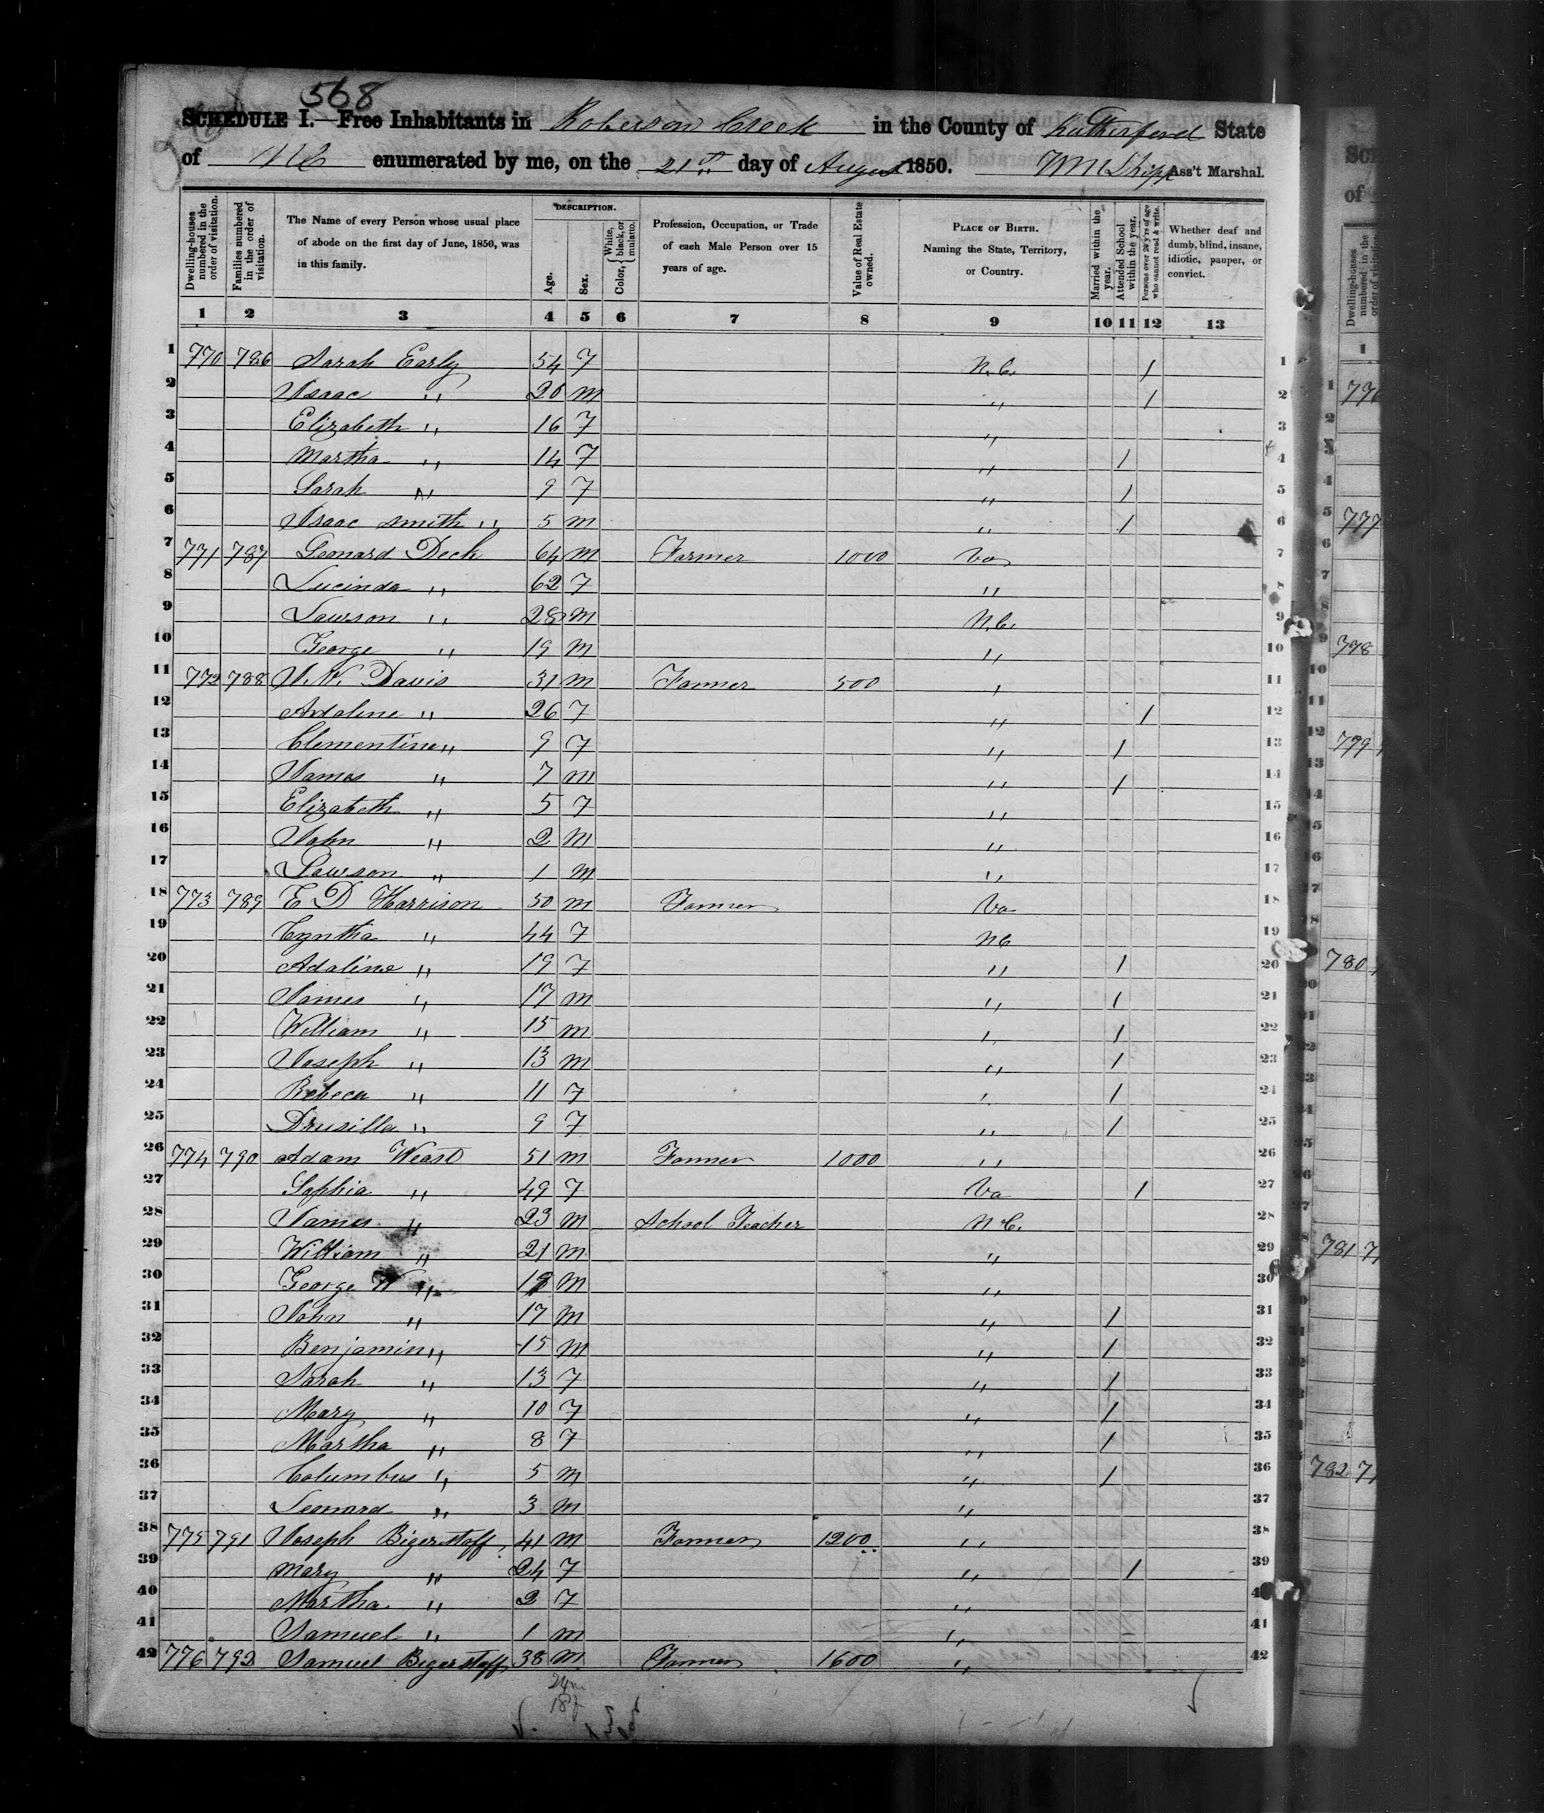 568
SCHEDULE I.—Free Inhabitants in Roberson Creek in the County of Rutherford State
of NC enumerated by me, on the 21st day of August 1850. Wm Shipp Ass't Marshal.
Dwelling-houses numbered in the order of visitation.
Families numbered in the order of visitation.
The Name of every Person whose usual place of abode on the first day of June, 1850, was in this family.
DESCRIPTION.
Age.
Sex.
Color, { White, black, or mulatto.
Profession, Occupation, or Trade of each Male Person over 15 years of age.
Value of Real Estate owned.
PLACE OF BIRTH. Naming the State, Territory, or Country.
Married within the year.
Attended School within the year.
Persons over 20 y'rs of age who cannot read & write.
Whether deaf and dumb, blind, insane, idiotic, pauper, or convict.
1 2 3 4 5 6 7 8 9 10 11 12 13
1 770 786 Sarah Early 54 F N.C. / 1
2 Isaac " 20 m " / 2
3 Elizabeth " 16 F " 3
4 Martha " 14 F " / 4
5 Sarah " 9 F " / 5
6 Isaac Smith " 5 m " / 6
7 771 787 Leonard Deck 64 m Farmer 1000 Va 7
8 Lucinda " 62 F " 8
9 Lawson " 28 m N.C. 9
10 George " 19 m " 10
11 772 788 J. N. Davis 31 m Farmer 500 " 11
12 Adaline " 26 F " / 12
13 Clementine " 9 F " / 13
14 James " 7 m " / 14
15 Elizabeth " 5 F " 15
16 John " 2 m " 16
17 Lawson " 1 m " 17
18 773 789 E D Harrison 50 m Farmer Va 18
19 Cyntha " 44 F NC 19
20 Adaline " 19 F " / 20
21 James " 17 m " / 21
22 William " 15 m " / 22
23 Joseph " 13 m " / 23
24 Rebeca " 11 F " / 24
25 Drusilla " 9 F " / 25
26 774 790 Adam Weast 51 m Farmer 1000 " 26
27 Sophia " 49 F Va / 27
28 James " 23 m School Teacher N.C. 28
29 William " 21 m " 29
30 George W " 19 m " 30
31 John " 17 m " / 31
32 Benjamin " 15 m " / 32
33 Sarah " 13 F " / 33
34 Mary " 10 F " / 34
35 Martha " 8 F " / 35
36 Columbus " 5 m " / 36
37 Leonard " 3 m " 37
38 775 791 Joseph Bigerstaff 41 m Farmer 1200 " 38
39 Mary " 24 F " / 39
40 Martha " 2 F " 4
41 Samuel " 1 m " 41
42 776 792 Samuel Bigerstaff 38 m Farmer 1600 " 42
24 m
18 f